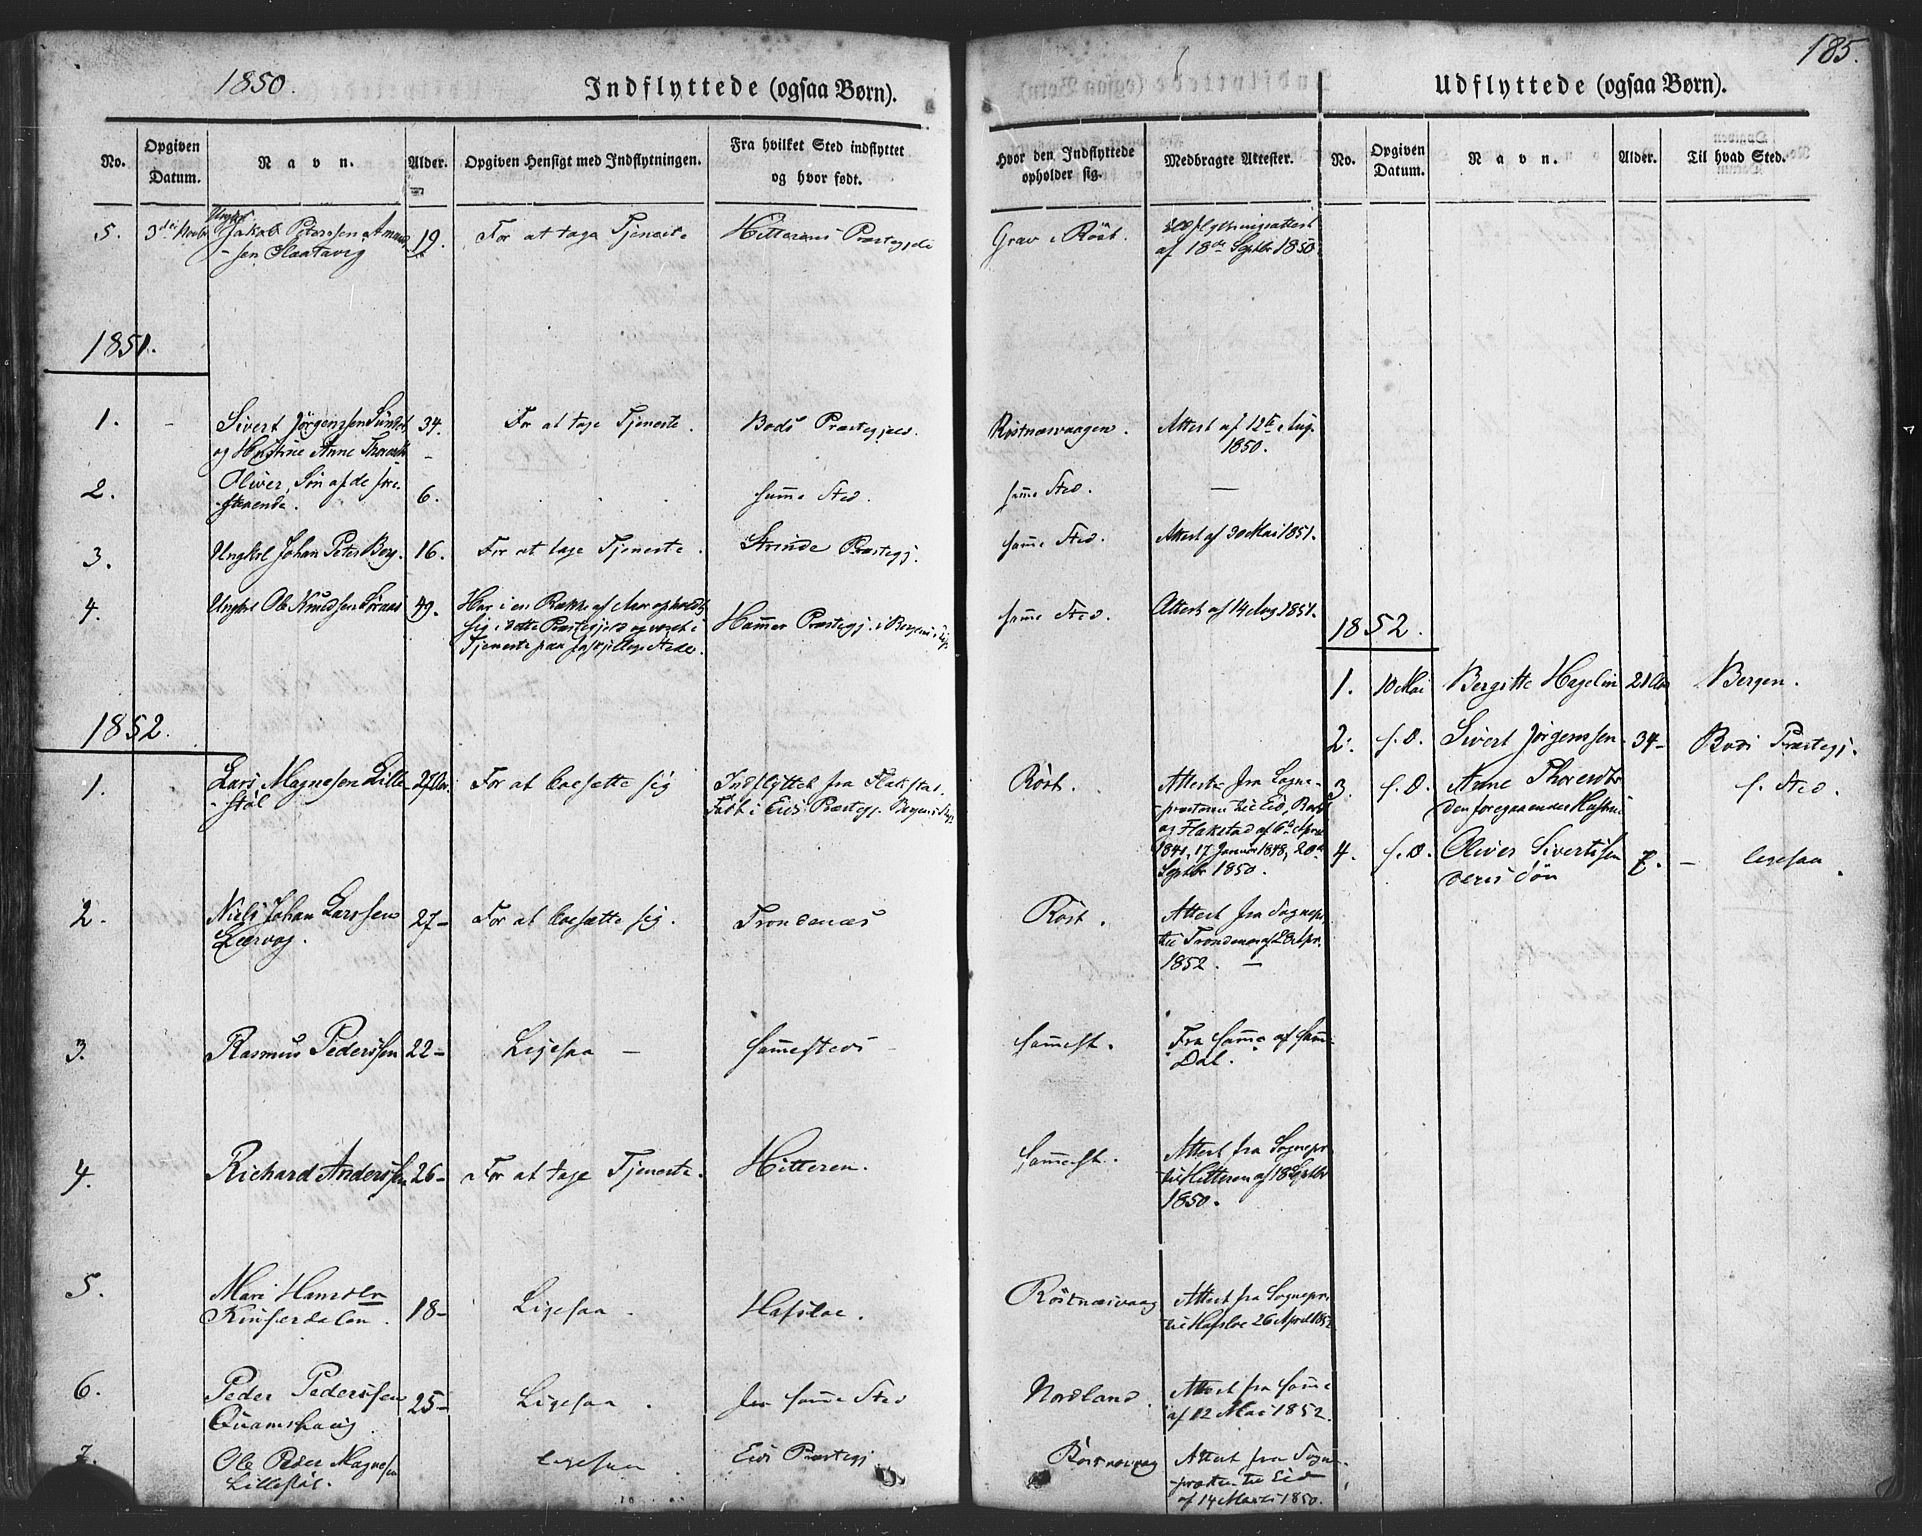 185.
1850.
Indflyttede (ogsaa Børn).
No.
Opgiven Datum.
Navn.
Alder.
Opgiven Hensigt med Indflytningen.
Fra hvilket Sted indflyttet
og hvor født.
Hvor den Indflyttede
opholder sig.
Medbragte Attester.
5. 3die Novbr Ungkrl Jakob Peterssen 19. For at tage Tjeneste Hitterens Præstegjeld Grav i Röst. Udflytningsattest
af 18de Septbr 1850.
1851.
1. Sivert Jörgenssen 34. For at tage Tjeneste. Bodö Præstegjeld. Röstnæsvaagen. Attest af 12te Aug.
og Hustrue Anne 1850.
2. Oliver, Sön af de fore-
staaende. 6. samme Sted. samme Sted. —
3. Ungkrl Johan Peter Berg. 16. For at tage Tjeneste. Strinde Præstegj. samme Sted. Attest af 30 Mai 1851.
4. Ungkrl Ole Knudsen 49. Har i en Række af Aar opholdt
sig i dette Præstegjeld og været i
Tjeneste paa forskjellige Steder.
Hammer Præstegj. i Bergens Stift samme Sted. Attest af 14 Aug 1851.
1852.
1. Lars Magnesen Lille-
stöl 27 Aar. For at bosætte sig Indflyttet fra Flakstad.
Født i Eids Præstegj. Bergens Stift Röst. Attester fra Sogne-
præsterne til Eid, Bodö
og Flakstad af 6te Apri
1841, 17 Januar 1848, 20de
Septbr 1850.
2. Niels Johan Larssen
Leervog. 27- For at bosætte sig. Trondenæs Röst. Attest fra Sognepr.
til Trondenæs af 28 Apr.
1852. —
3. Rasmus Pederssen 22- Ligesaa — sammesteds — sammest. Fra samme af samme
Dat.
4. Richard Anderssen 26- For at tage Tjeneste. Hitteren. Sammest. Attest fra Sognepr.
til Hitteren af 18 Septbr
1850.
5. Mari Hansdtr
Kinserdalen. 18- Ligesaa - Hafsloe. Röstnæsvaag Attest fra Sognepr.
til Hafsloe 26 April 1852
6. Peder Pederssen
Quamshaug. 25- Ligesaa. fra samme Sted Nordland. Attest fra samme
af 12 Mai 1852.
7. Ole Peder Magnesen
Lillestöl. ligesaa Eids Præstegj Röstnæsvaag Attest fra Sogne-
præsten til Eid
af 14 Marts 1850.
Udflyttede (ogsaa Børn).
No.
Opgiven Datum.
Navn.
Alder.
Til hvad Sted.
1852.
1. 10 Mai Bergitte Hagelin 21 Aar Bergen.
2. s. D. Sivert Jörgenssen 34- Bodö Præstegj.
3. s. D. Anne
den foregaaendes Hustrue s. Sted.
4. s. D. Oliver Sivertssen
deres Sön 7. — ligesaa